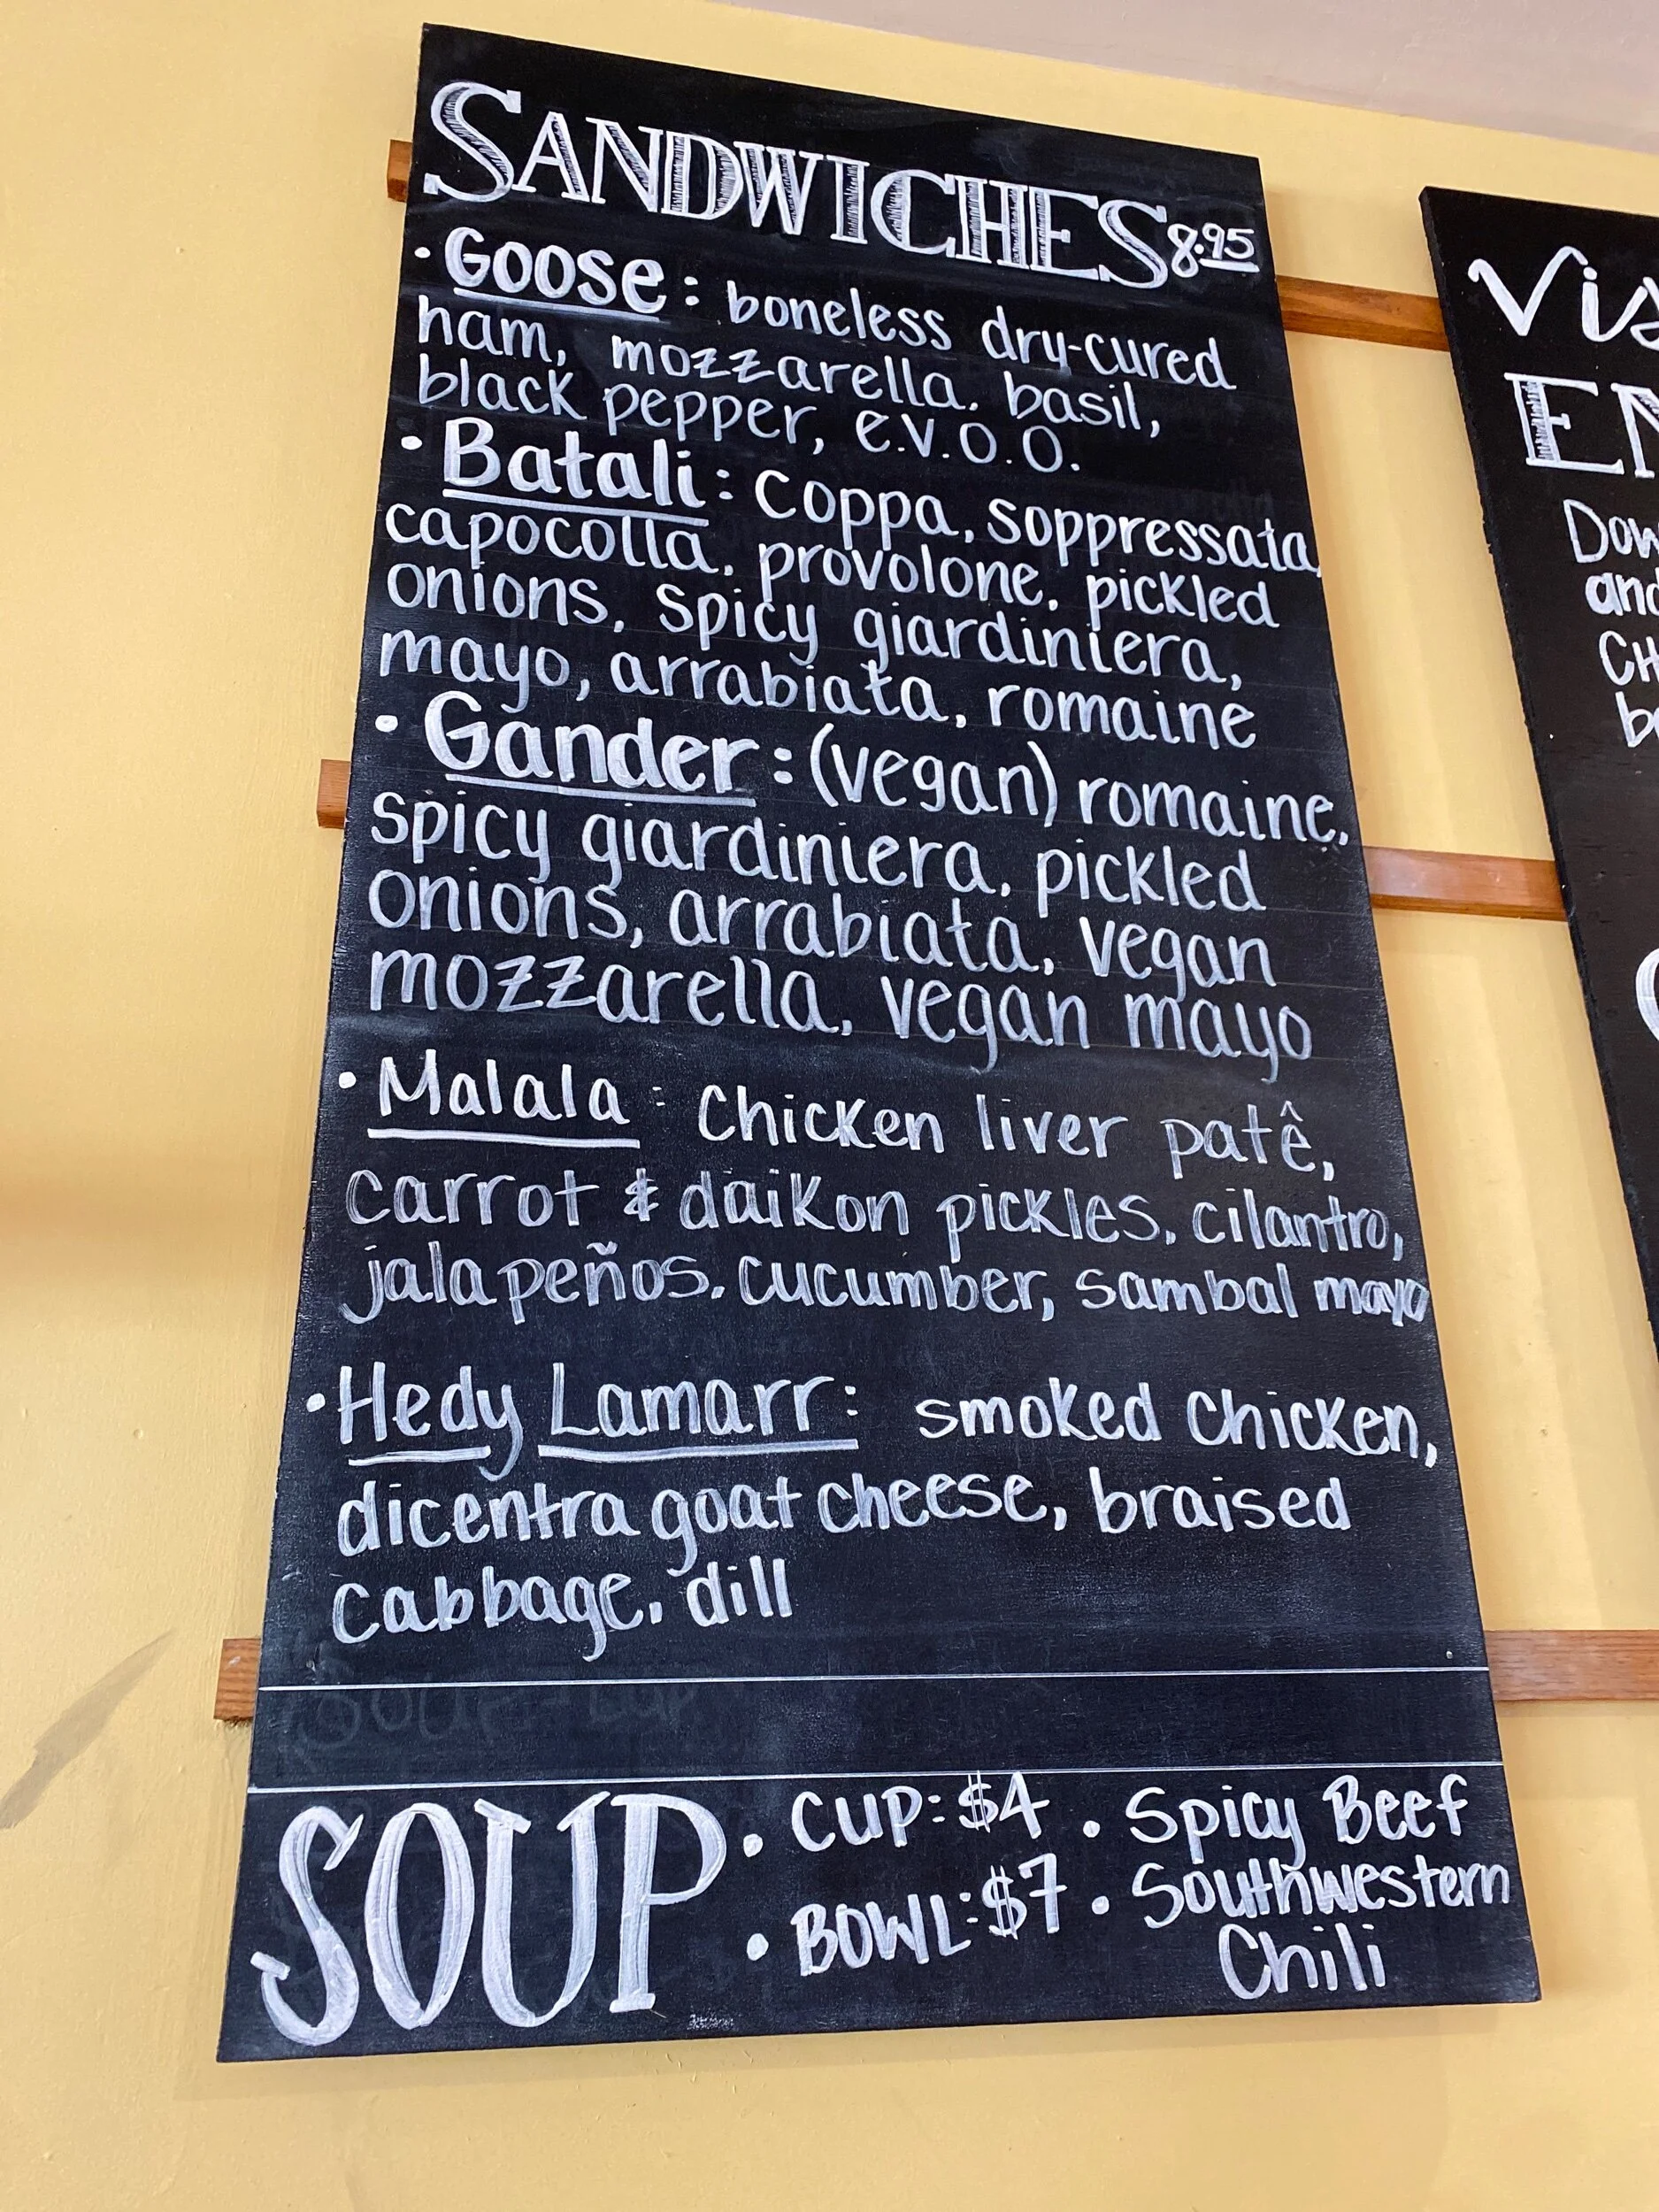 SANDWICHES 8.95
· Goose: boneless dry-cured
ham, mozzarella, basil,
black pepper, e.v.o.o.
· Batali: Coppa, soppressata,
capocolla, provolone, pickled
onions, spicy giardiniera,
mayo, arrabiata, romaine
· Gander: (vegan) romaine,
spicy giardiniera, pickled
onions, arrabiata, vegan
mozzarella, vegan mayo
· Malala: Chicken liver patê,
carrot & daikon pickles, cilantro,
jalapeños, cucumber, sambal mayo
· Hedy Lamarr: smoked Chicken,
dicentra goat cheese, braised
cabbage, dill
Soup - cup
SOUP
· CUP: $4
· BOWL: $7
· Spicy Beef
· Southwestern
Chili
Vis
EN
Dow
and
CH
be